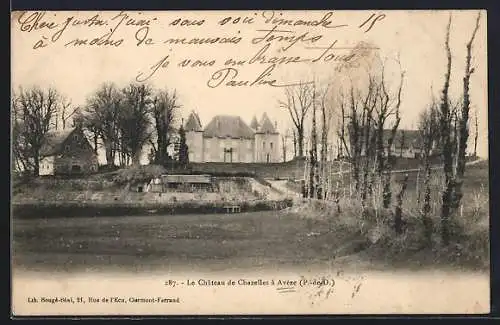 Chère Justa. J'irai sous soir dimanche 15
à moins de mauvais temps
je vous embrasse Tous
Pauline
287. - Le Château de Chazelles à Avèze (P.-de-D.)
Lith. Bougé-Béal, 21, Rue de l'Ecu, Clermont-Ferrand